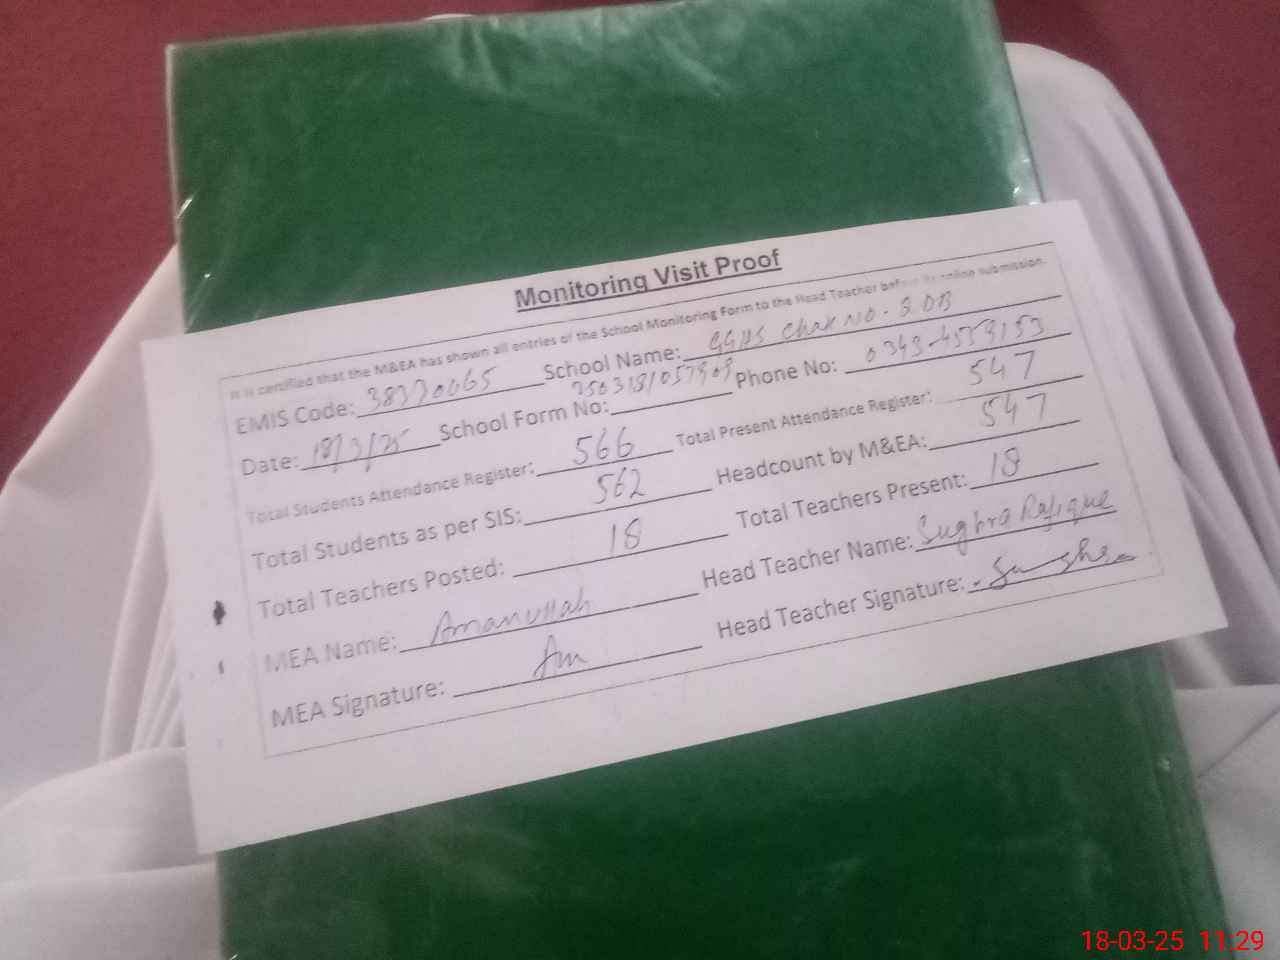 Monitoring Visit Proof
It is certified that the M&EA has shown all entries of the School Monitoring Form to the Head Teacher before its online submission.
EMIS Code: 38330065 School Name: GGHS Chak NO. 8 DB
Date: 18/3/25 School Form No: Phone No: 0343-4559153
Total Students Attendance Register: 566 Total Present Attendance Register: 547
Total Students as per SIS: 562 Headcount by M&EA: 547
Total Teachers Posted: 18 Total Teachers Present: 18
MEA Name: Amanullah Head Teacher Name: Sughra Rafique
MEA Signature: Am Head Teacher Signature:
18-03-25 11:29